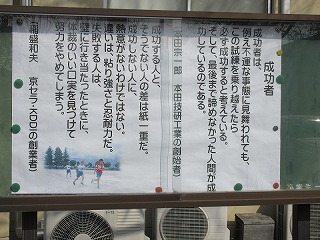 成功者
成功者は、
例え不運な事態に見舞われても、
この試練を乗り越えたら
必ず成功すると考えている。
そして、最後まで諦めなかった人間が成
功しているのである。
本田宗一郎 本田技研工業の創始者)
成功する人と、
そうでない人の差は紙一重だ。
成功しない人に、
熱意がないわけではない。
違いは、粘り強さと忍耐力だ。
失敗する人は、
壁に行き当たったときに、
体裁のいい口実を見つけて
努力をやめてしまう。
稲盛和夫 京セラ・KDDIの創業者)